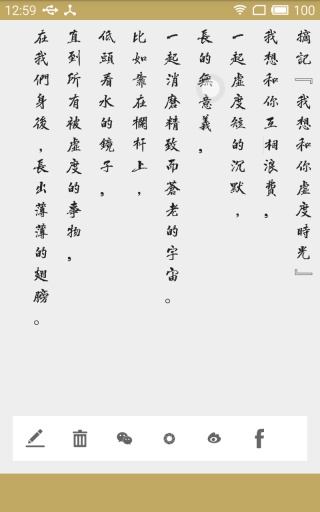 12:59
100
摘記『我想和你虛度時光』
我想和你互相浪費，
一起虛度短的沉默，
長的無意義，
一起消磨精致而蒼老的宇宙。
比如靠在欄杆上，
低頭看水的鏡子，
直到所有被虛度的事物，
在我們身後，長出薄薄的翅膀。